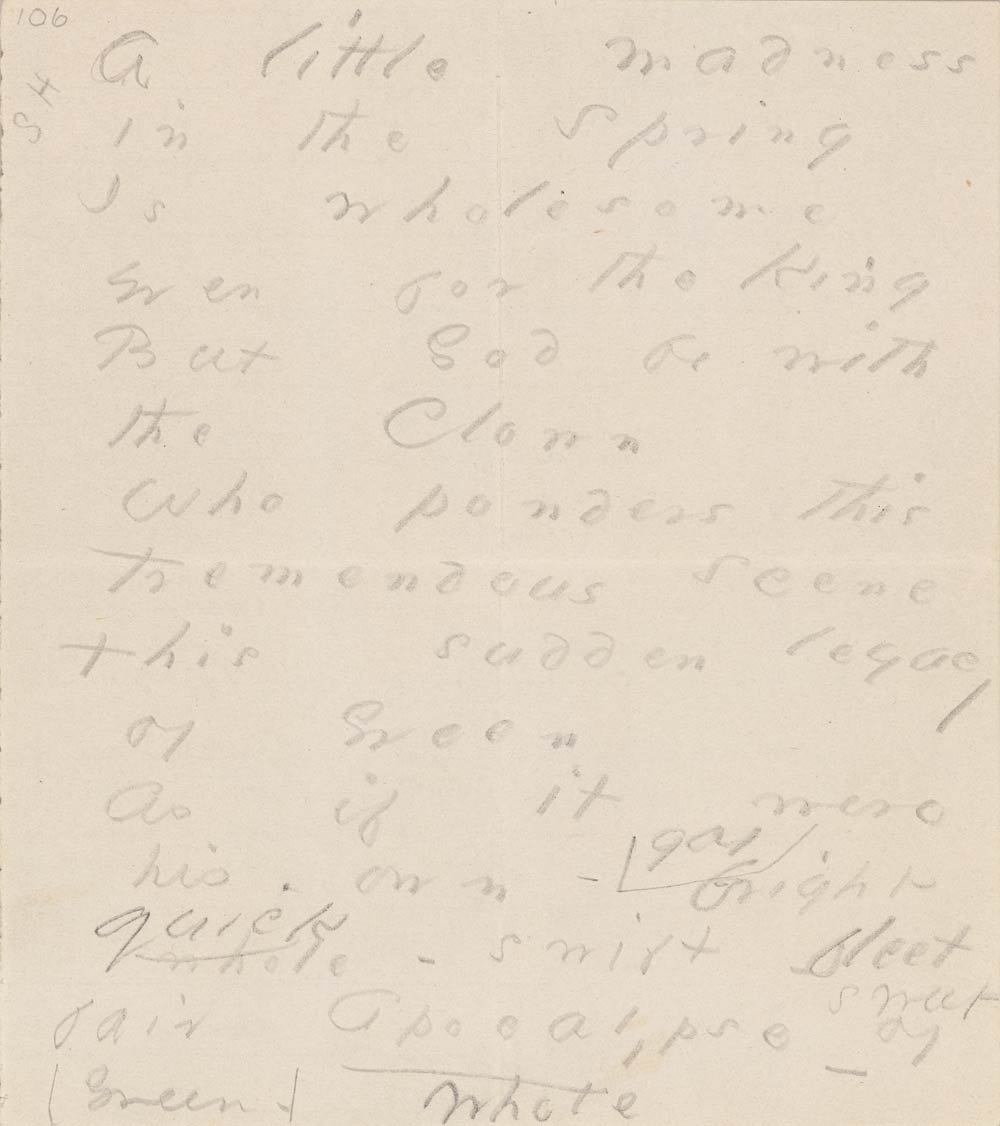 106
A little madness
in the Spring
Is wholesome
even for the King
But God be with
the Clown
Who ponders this
Tremendous scene
this sudden legacy
of Green
As if it were
gay
his own - bright
quick
whole - swift fleet
sweet
fair Apocalypse of
Green - whole